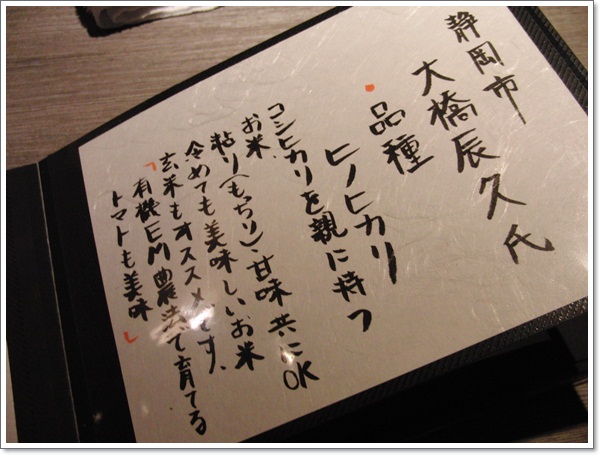 静岡市
大橋辰久氏
品種
ヒノヒカリ
コシヒカリを親に持つ
お米。
粘り(もっちり)甘味共にOK
冷めても美味しいお米
玄米もオススメです。
「有機農法で育てる
トマトも美味」